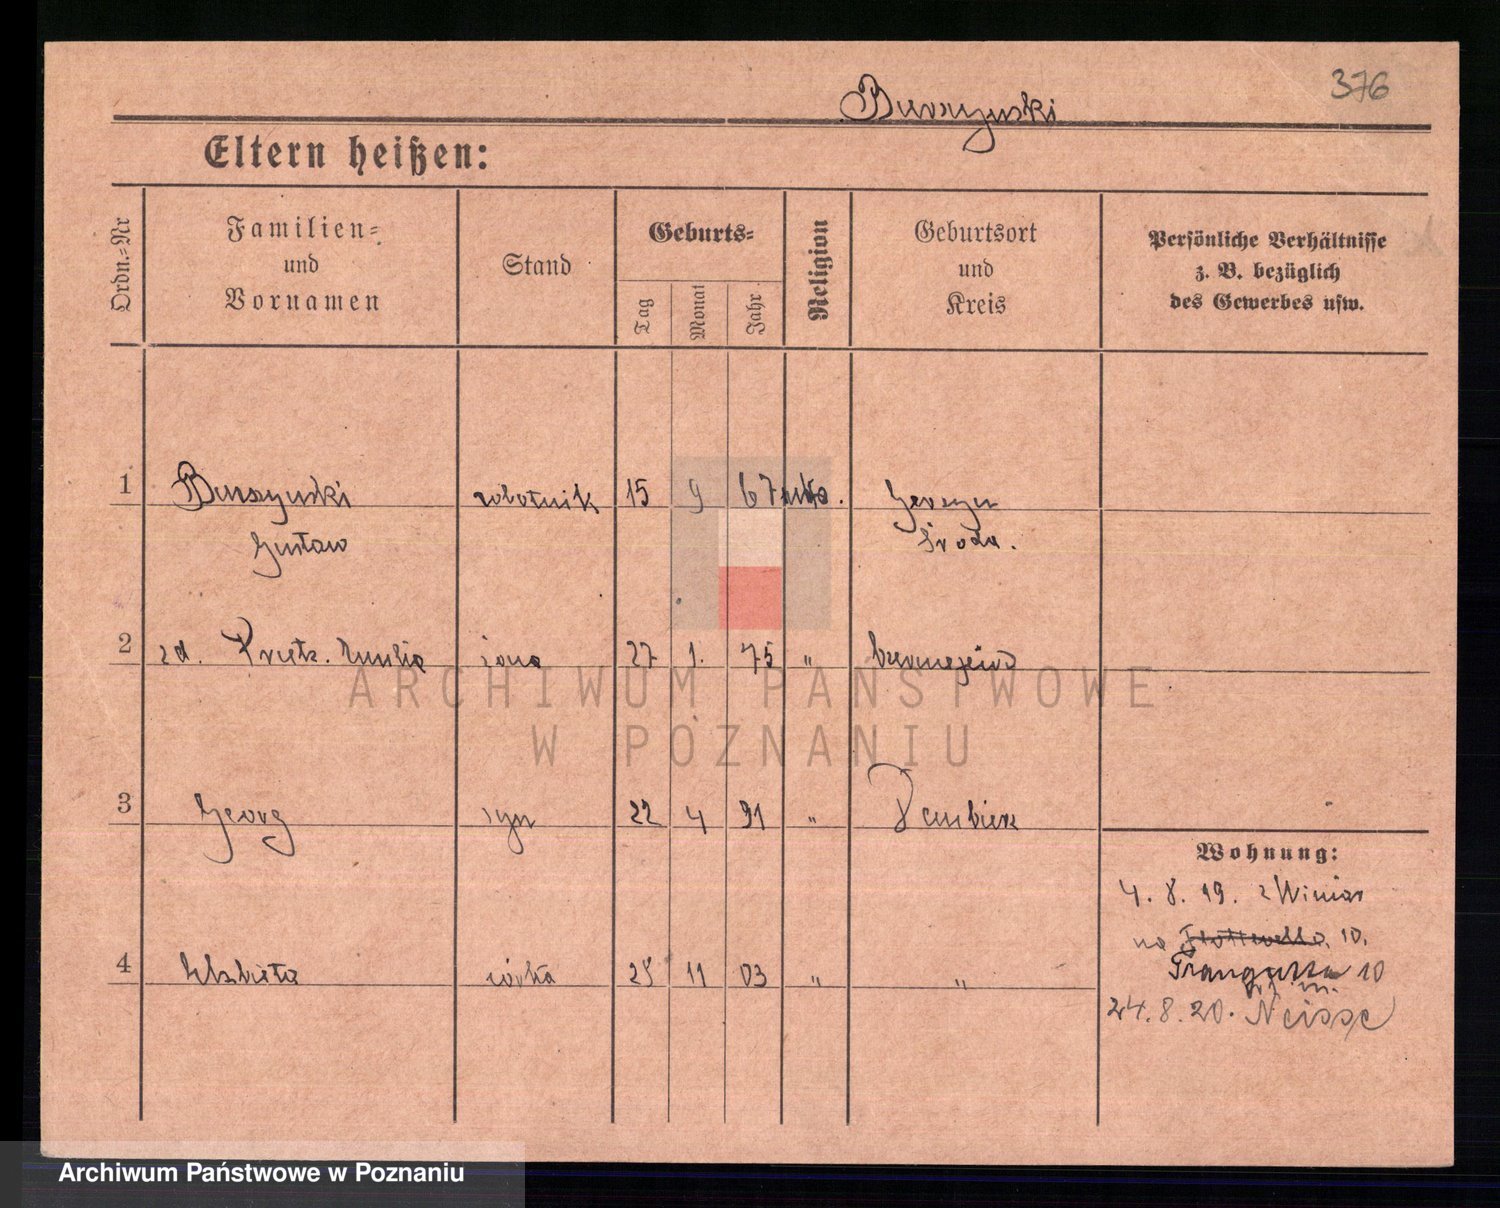 376
Burszynski
Eltern heißen:
Ordn.-Nr
Familien=
und
Vornamen
Stand
Geburts=
Tag
Monat
Jahr
Religion
Geburtsort
und
Kreis
Persönliche Verhältnisse
z. B. bezüglich
des Gewerbes usw.
1 Burszynski robotnik 15 9 67
Gustaw Środa.
2 zd. żona 27 1. 75 "
3 Georg syn 22 4 91 "
Wohnung:
4. 8. 19. z Winiar
na 10.
10
4 Elzbieta córka 11 03 " "
24. 8. 20. Neisse
ARCHIWUM PAŃSTWOWE
W POZNANIU
Archiwum Państwowe w Poznaniu